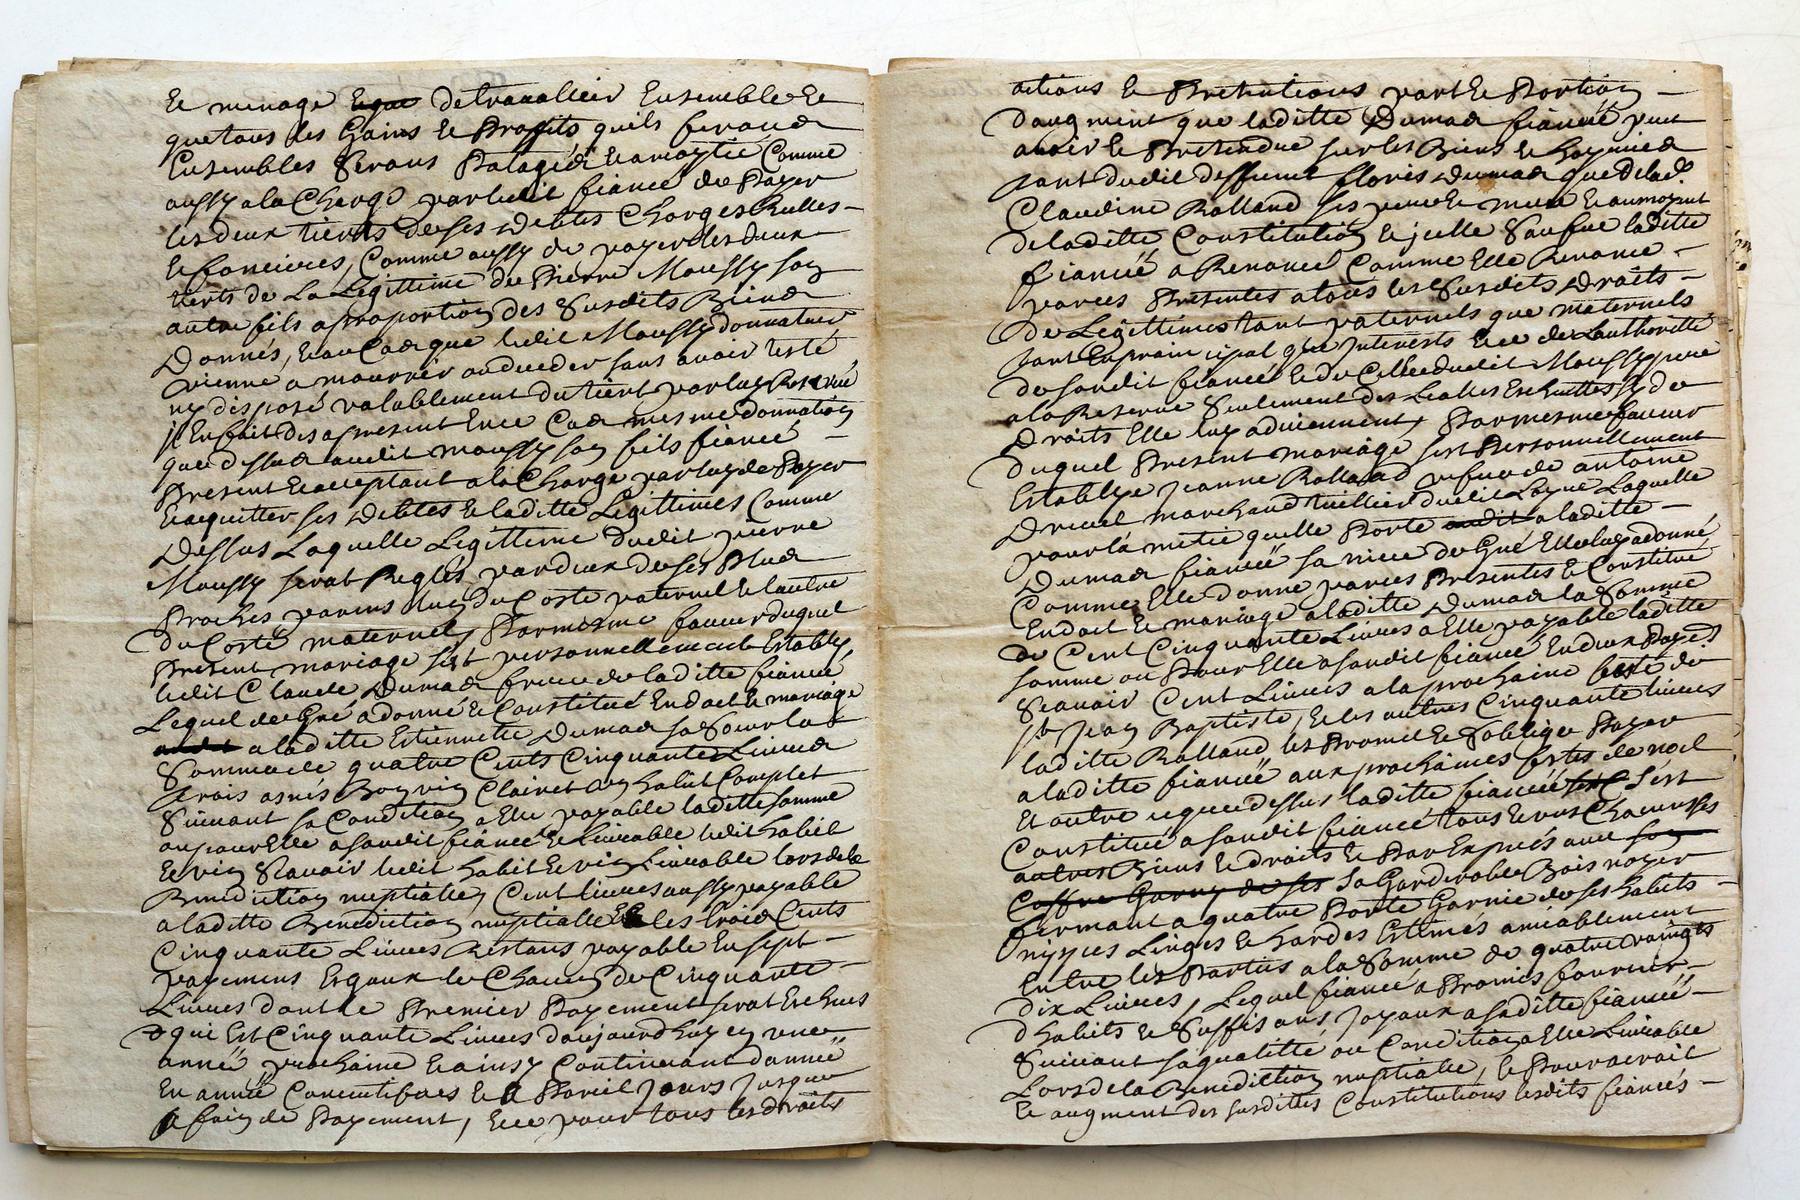 Et menage Et que de travallier Ensemble Et
que tous les Gains Et Proffits quils feronds
Ensembles Serons Patagés Et a moytié Comme
aussy a la Charge par ledit fiancé de Payer
les deux tierts de ses debtes Charges Rulles
Et foncieres, Comme aussy de payer les deux
tierts de La Legittime de Pierre Moussy son
autre fils a proportion des Susdits Biens
Donnés, Et au Cas que ledit Moussy donnateur
vienne a mourrir ou deceder sans avoir testé
ny disposé valablement du tiert par luy Reservé
il En fait des a present En ce Cas mesme donnation
que dessus audit moussy son fils fiancé
Present Et acceptant a la Charge par luy de Payer
Et acquitter ses debtes Et laditte Legittimes Comme
Dessus Laquelle Legittime dudit pierre
Moussy serat Reglés par deux de ses Plus
Proches parens lun du Costé paternel Et lautre
du Costé maternel, Par mesme faveur duquel
Present mariage sest personnellement Etably
ledit Claude Dumas frere de laditte fiancé,
Lequel de Gré a donné Et Constitué En dot Et mariage
a laditte Estiennette Dumas sa Soeur la
Somme de quatre Cents Cinquante Livres
trois asnés Bon vin Clairet un habit Complet
Suivant sa Condition a Elle payable laditte somme
ou pour Elle a sondit fiancé Et Livrable ledit habit
Et vin Scavoir ledit habit Et vin Livrable lors de la
Benediction nuptialle, Cent livres aussy payable
a laditte Benediction nuptialle Et les trois Cents
Cinquante Livres Restans payable En sept
payemens Esgaux de Chacun de Cinquante
Livres dont le Premier Payement serat Eschus
qui Est Cinquante Livres daujourdhuy en une
année prochaine Et ainsy Continuant dannée
En année Consecutifves Et a Pareil Jours Jusque
a fain de Payement, Et ce pour tous les droits
actions Et Pretentions part Et Portion
daugment que laditte Dumas fiancée peut
avoir Et Pretendre sur les Biens Et hoyries
tant dudit deffunt floris Dumas que de lad.
Claudine Rolland ses pere Et mere Et au moyent
de laditte Constitution Et jcelle Saufve laditte
fiancée a Renoncé Comme Elle Renonce
par ces Presentes a tous les Susdits Droits
De Legittimes tant paternels que maternels
tant En principal que Interests Et ce de Lauthorité
de sondit fiancé Et de Celle dudit Moussy pere
a la Reserve Seulement des Leales Escheuttes sy de
Droits Elle luy adviennent, Par mesme faveur
duquel Present mariage sest Personnellement
Establye Jeanne Rolland vefve de antoine
Drevet marchand tuillier dudit Loyre Laquelle
pour la mitié quelle Porte audit a laditte
Dumas fiancée sa niece de Gré Elle luy a donné,
Comme Elle donne par ces Presentes Et Constitue
En dot Et mariage a laditte Dumas la Somme
de Cent Cinquante Livres a Elle payable laditte
somme ou Pour Elle a sondit fiancé En deux Payes
Scavoir Cent Livres a la prochaine feste de
st Jean Baptiste, Et les autres Cinquante livres
laditte Rolland les Promet Et Soblige Payer
a laditte fiancée aux prochaines festes de noel
Et outre ce que dessus laditte fiancée sest Sest
Constitué a sondit fiancé tous Et uns Chacuns ses
autres Biens Et droits Et Par Exprés une son
Coffre Garny de ses Sa Garderobbe Bois noyer
fermant a quatre Porte Garnie de ses habits
nippes Linges Et hardes Estimés amiablement
Entre les Parties a la Somme de quatre vaingts
dix Livres, Lequel fiancé a Promis fournir
dhabits Et Suffisans Joyaux a saditte fiancée
Suivant sa qualitté ou Condition a Elle Livrable
Lors de la Benediction nuptialle, Et Pour acroit
Et augment des susdittes Constitutions lesdits fiancés